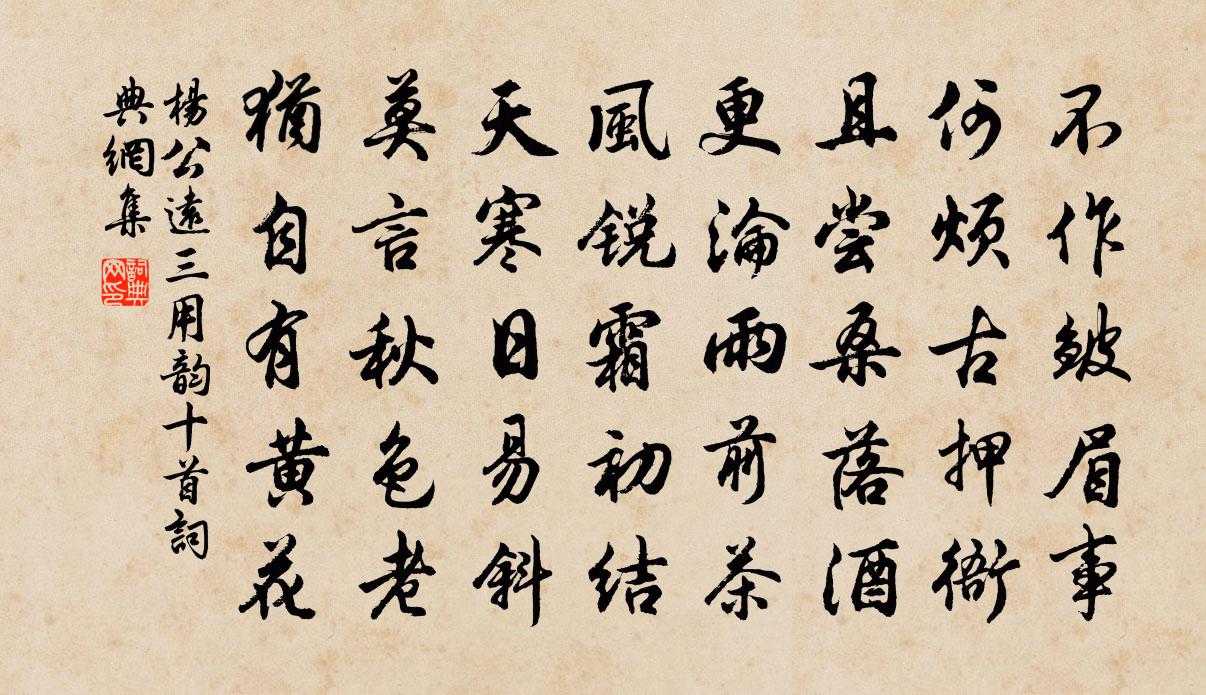 不作皴眉事
何烦古押衙
且尝桑落酒
更淪雨前茶
風锐霜初结
天寒日易斜
莫言秋色老
猶自有黄花
楊公遠三用韵十首詞
典網集
詞典
网印